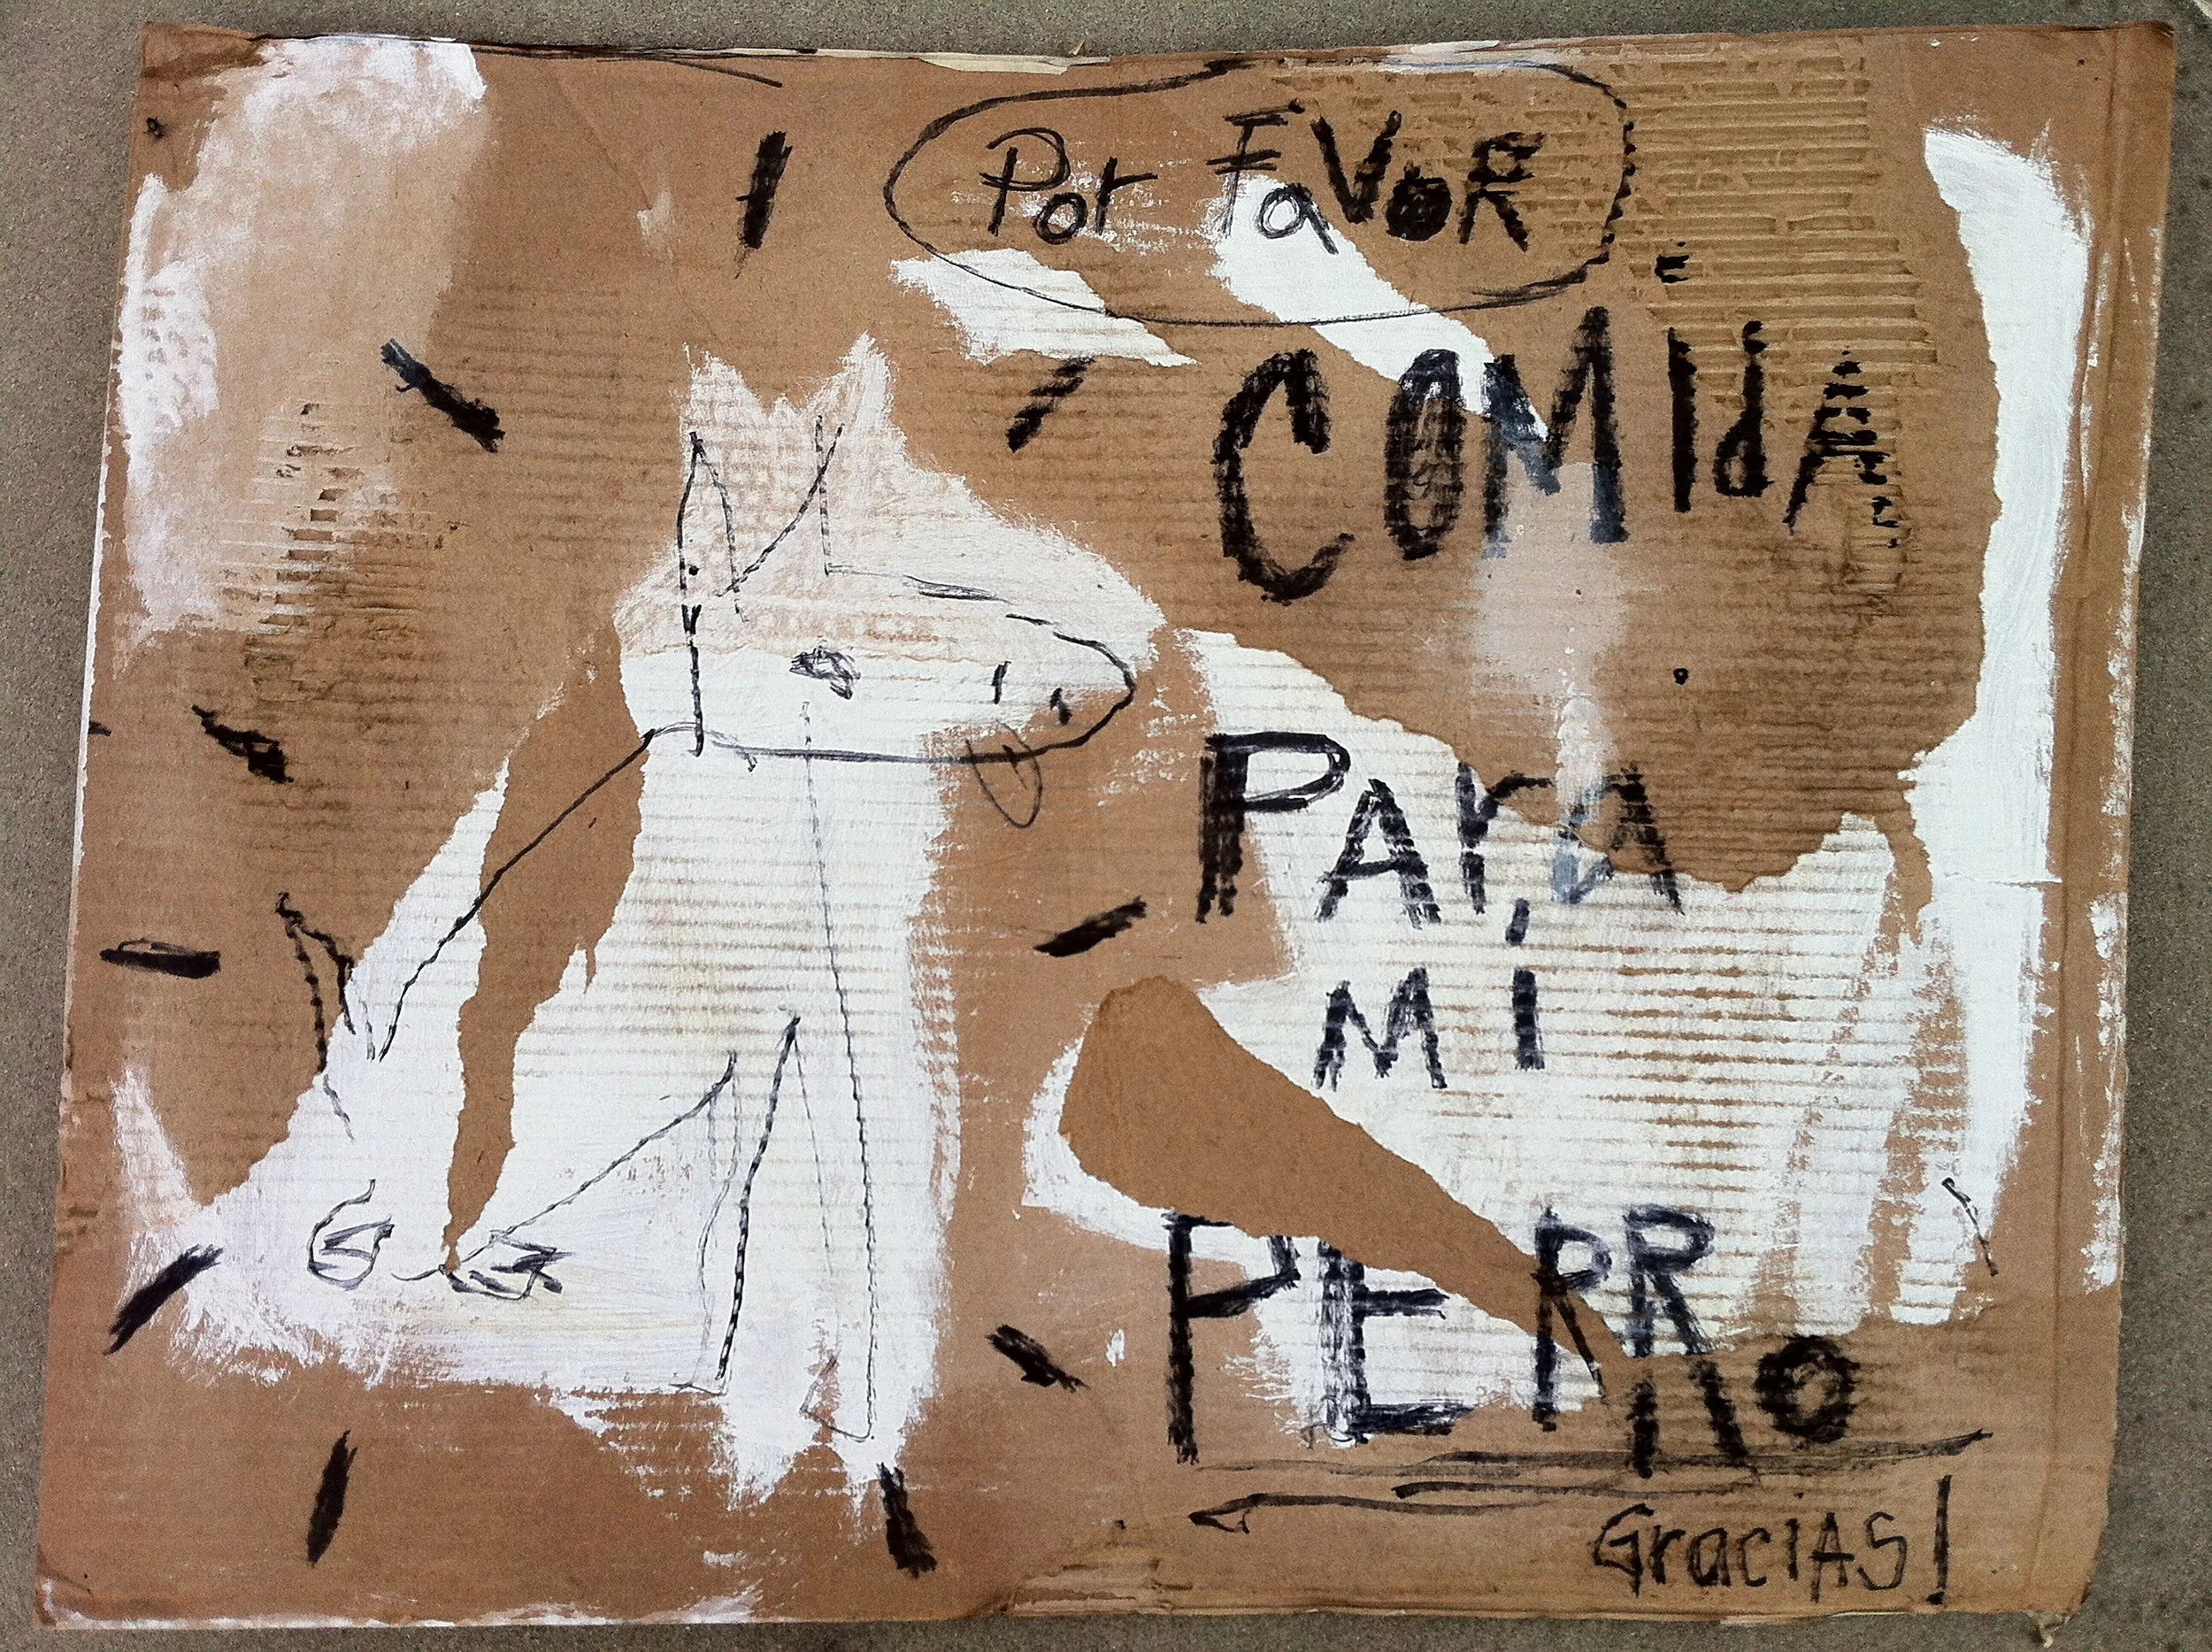 Por FaVoR
COMIdA
PARa
Mi
PERRO
GraciAS!